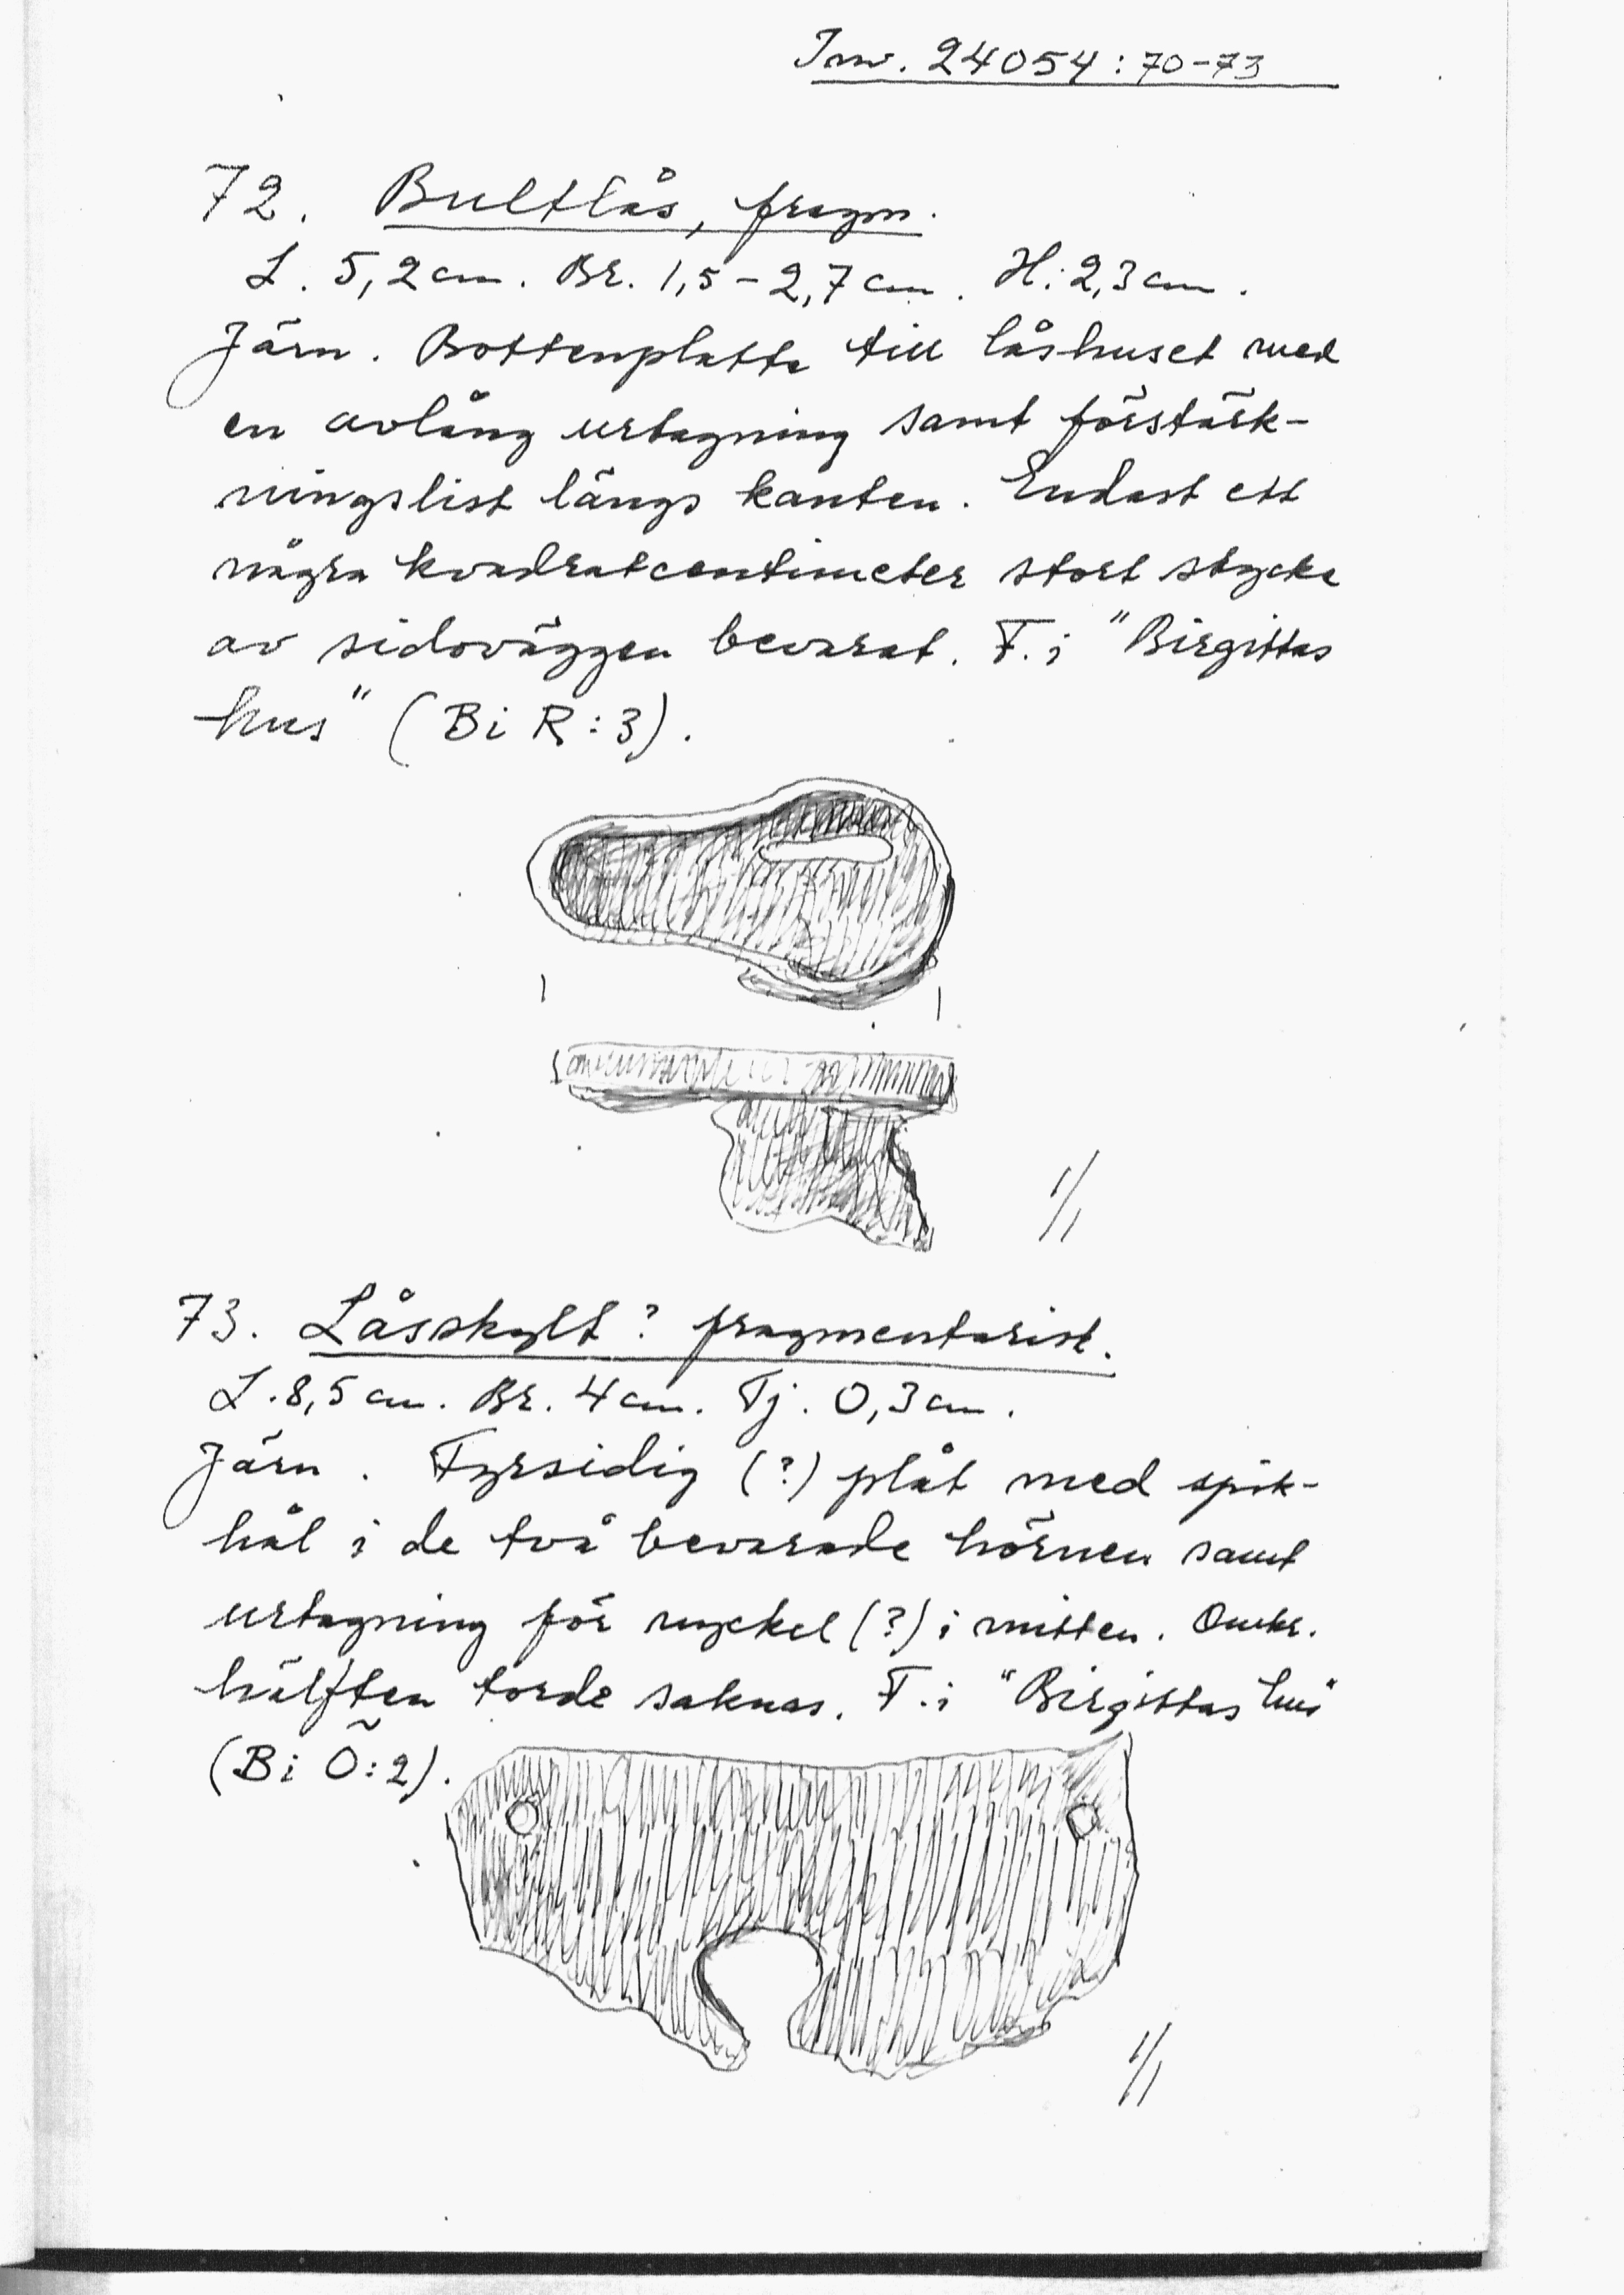 Inv. 24054:70-73
72. Bultlås, fragm.
L. 5,2 cm. Br. 1,5-2,7 cm. H: 2,3 cm.
Järn. Bottenplatta till låshuset med
en avlång urtagning samt förstärk-
ningslist längs kanten. Endast ett
några kvadratcentimeter stort stycke
av sidoväggen bevarat. F. i "Birgittas
hus" (Bi R:3).
1/1
73. Låsskylt? fragmentarisk.
L. 8,5 cm. Br. 4 cm. Tj. 0,3 cm.
Järn. Fyrsidig (?) plåt med spik-
hål i de två bevarade hörnen samt
urtagning för nyckel (?) i mitten.
hälften torde saknas. F. i "Birgittas hus"
(Bi Ö:2).
1/1